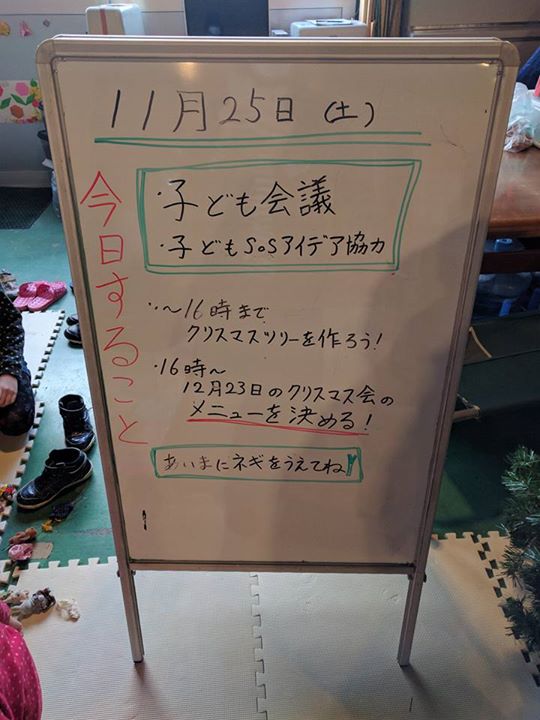 11月25日(土)
今日すること
・子ども会議
・子どもSoSアイデア協力
・〜16時まで
クリスマスツリーを作ろう!
・16時〜
12月23日のクリスマス会の
メニューを決める!
あいまにネギをうえてね!